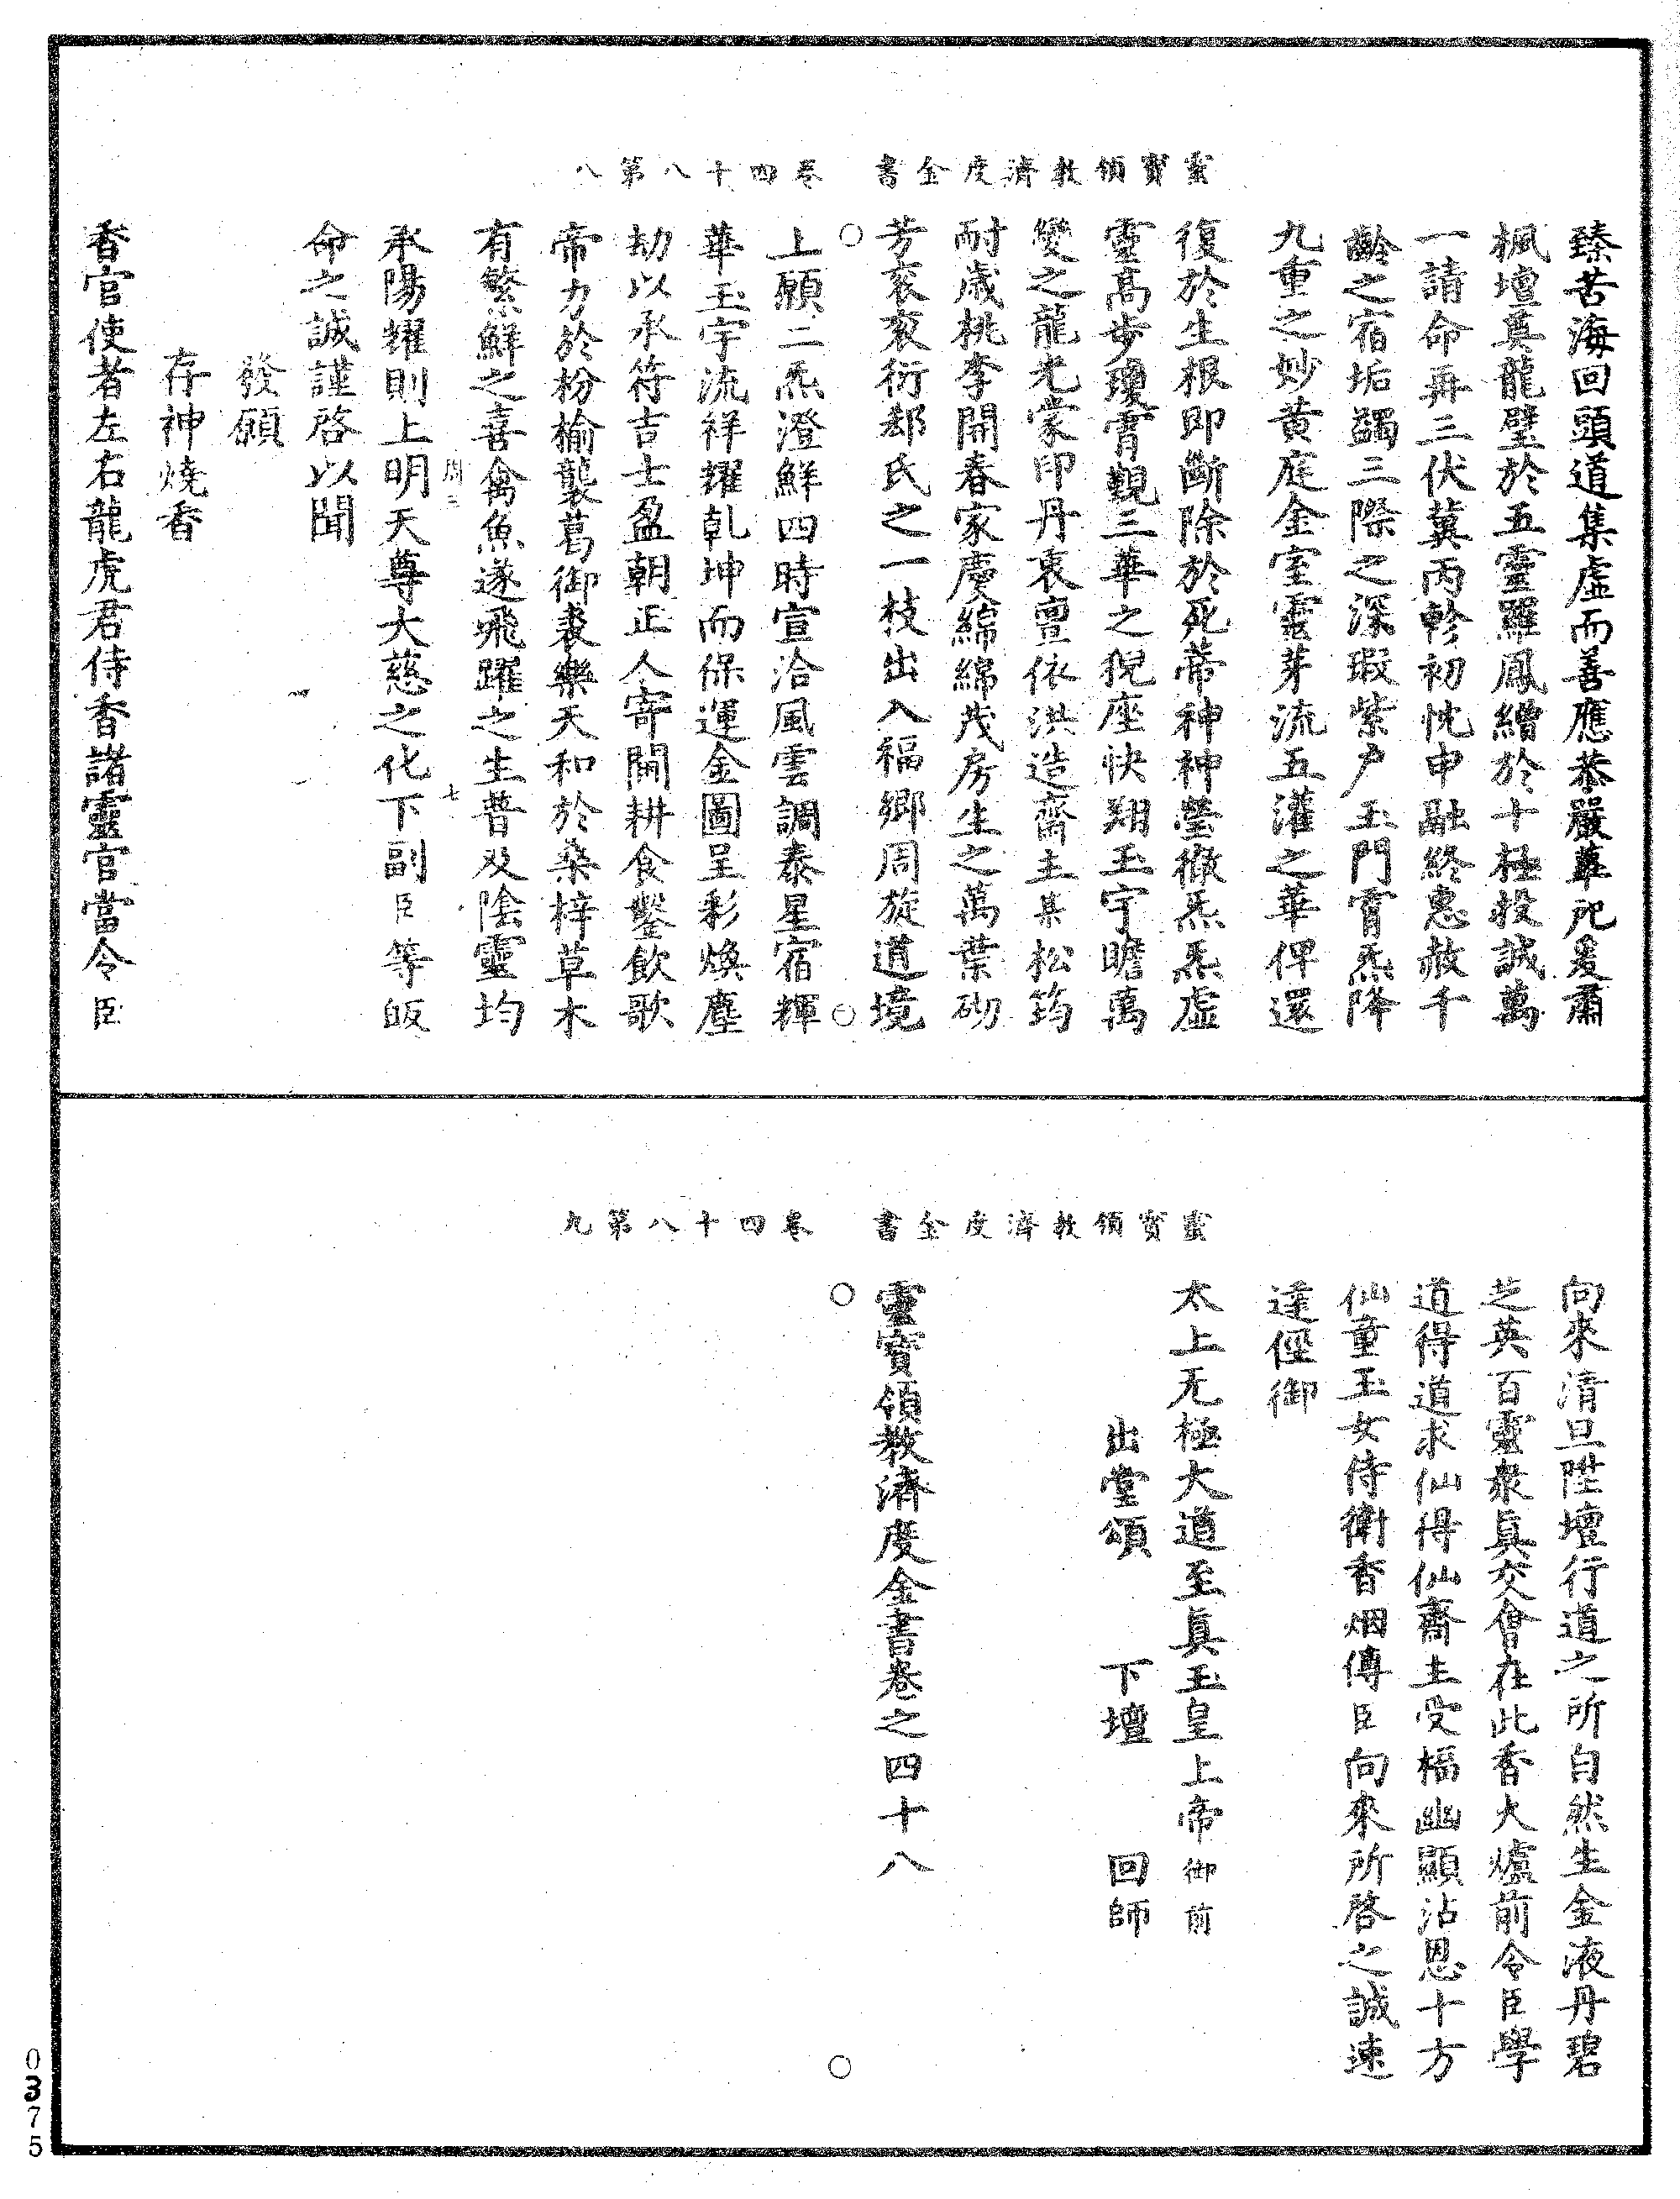 靈寶領教濟度金書 卷四十八第八
臻苦海回頭道集虛而善應恭嚴華祀爰肅
楓壇奠龍璧於五靈羅鳳繒於十極投誠萬
一請命再三伏冀丙軫初忱申融終惠赦千
齡之宿垢蠲三際之深瑕紫戶玉門霄炁降
九重之妙黃庭金室靈芽流五灌之華俾還
復於生根即斷除於死蒂神神瑩徹炁炁虛
靈高步瓊霄覲三華之猊座快翔玉宇瞻萬
變之龍光蒙印丹衷亶依洪造齋主某松筠
耐歲桃李開春家慶綿綿茂房生之萬葉砌
芳袞袞衍郄氏之一枝出入福鄉周旋道境
上願二炁澄鮮四時宣洽風雲調泰星宿輝
華玉宇流祥耀乹坤而保運金圖呈彩煥塵
劫以承符吉士盈朝正人寄閫耕食鑿飲歌
帝力於枌榆襲葛御裘樂天和於桑梓草木
有繁鮮之喜禽魚遂飛躍之生普及陰靈均
承陽耀則上明天尊大慈之化下副臣等皈
周三 七
命之誠謹啓以聞
發願
存神燒香
香官使者左右龍虎君侍香諸靈官當令臣
靈寶領教濟度金書 卷四十八第九
向來清旦陞壇行道之所自然生金液丹碧
芝英百靈衆眞交會在此香火爐前令臣學
道得道求仙得仙齋主受福幽顯沾恩十方
仙童玉女侍衛香烟傳臣向來所啓之誠速
達徑御
太上无極大道至眞玉皇上帝御前
出堂頌 下壇 回師
靈寶領教濟度金書卷之四十八
0375